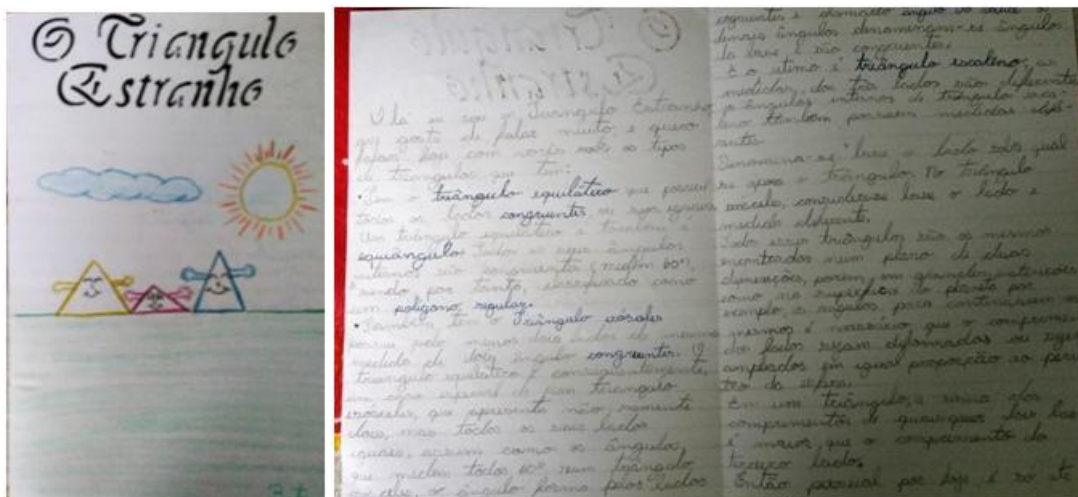 O Triangulo
Estranho
Olá eu sou o Triangulo Estranho
que gosta de falar muito e quero
falar hoje com vocês sobre os tipos
de triangulos que tem:
• Tem o triângulo equilático que possui
todos os lados congruentes ou seja iguais
Um triângulo equilático é também
equiângulo todos os seus ângulos
internos são congruentes (medem 60°),
sendo por tanto, classificado como
um polígono regular.
• Também, tem o Triângulo isósceles
possui pelo menos dois lados de mesma
medida de dois ângulos congruentes. O
triangulo equilatico é consequentemente,
um caso especial de um triangulo
isósceles, que apresenta não somente
dois, mas todos os seus lados
iguais, assim como os ângulos,
que medem todos 60° num triângulo
o ângulo formo pelos lados
congruentes é chamado ângulo do
demais ângulos denominam-se ângulos
da base e são congruentes.
E o utimo é triângulo escaleno, as
medidas dos três lados são diferentes
ângulos internos de triangulo
tambem possuem medidas
Denomina-se base o lado sob qual
se apoia o triângulo. No triângulo
considera-se base o lado
medida diferente.
Todos esses triângulos são os mesmos
encontrados num plano de duas
dimensões, porem, em grandes extensões
como, na superficie do planeta por
exemplo, os angulos, para continuarem os
mesmos é necessário, que o comprimento
dos lados sejam
em igual proporção ao
da esfera.
Em um triângulo, a soma dos
comprimentos de quaisquer dois lados
é maior, que o comprimento do
terceiro lados.
Então pessoal por hoje é só